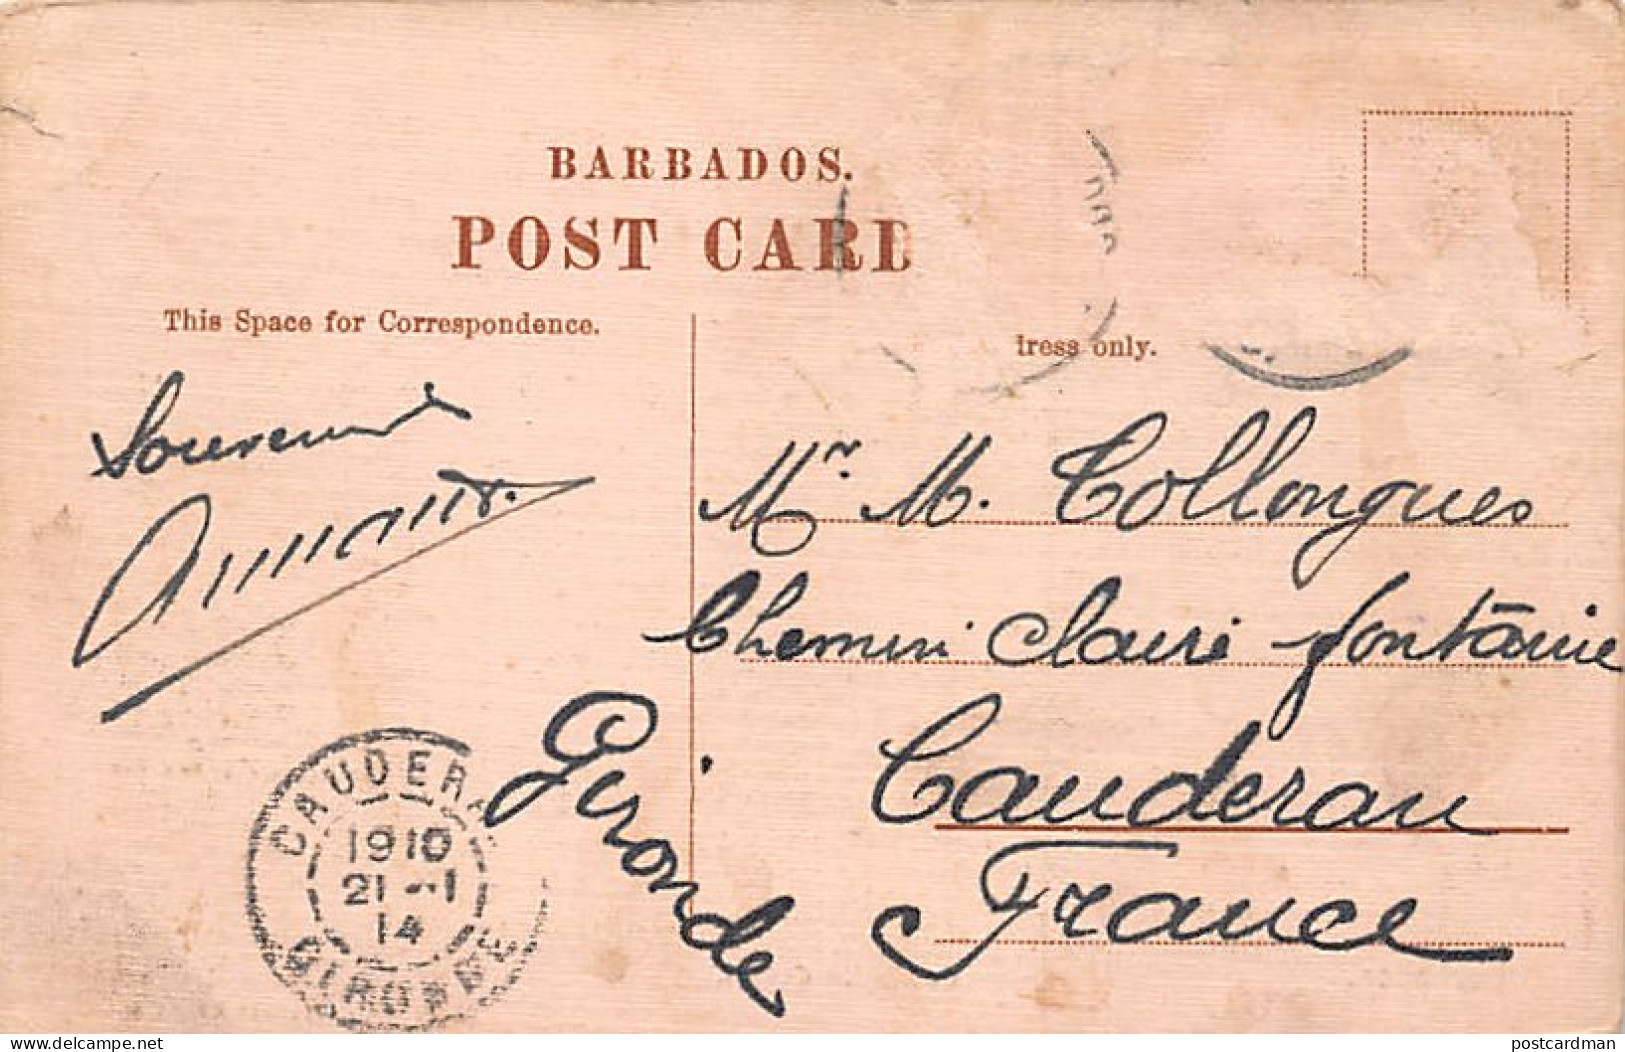 BARBADOS.
POST CARD
This Space for Correspondence.
dress only.
Souvenir
Mr. M. Collongues
Chemin Claire fontaine
Cauderan
France
Gironde
CAUDERA
1910
21 - 1
14
GIRONDE
www.delcampe.net
postcardman